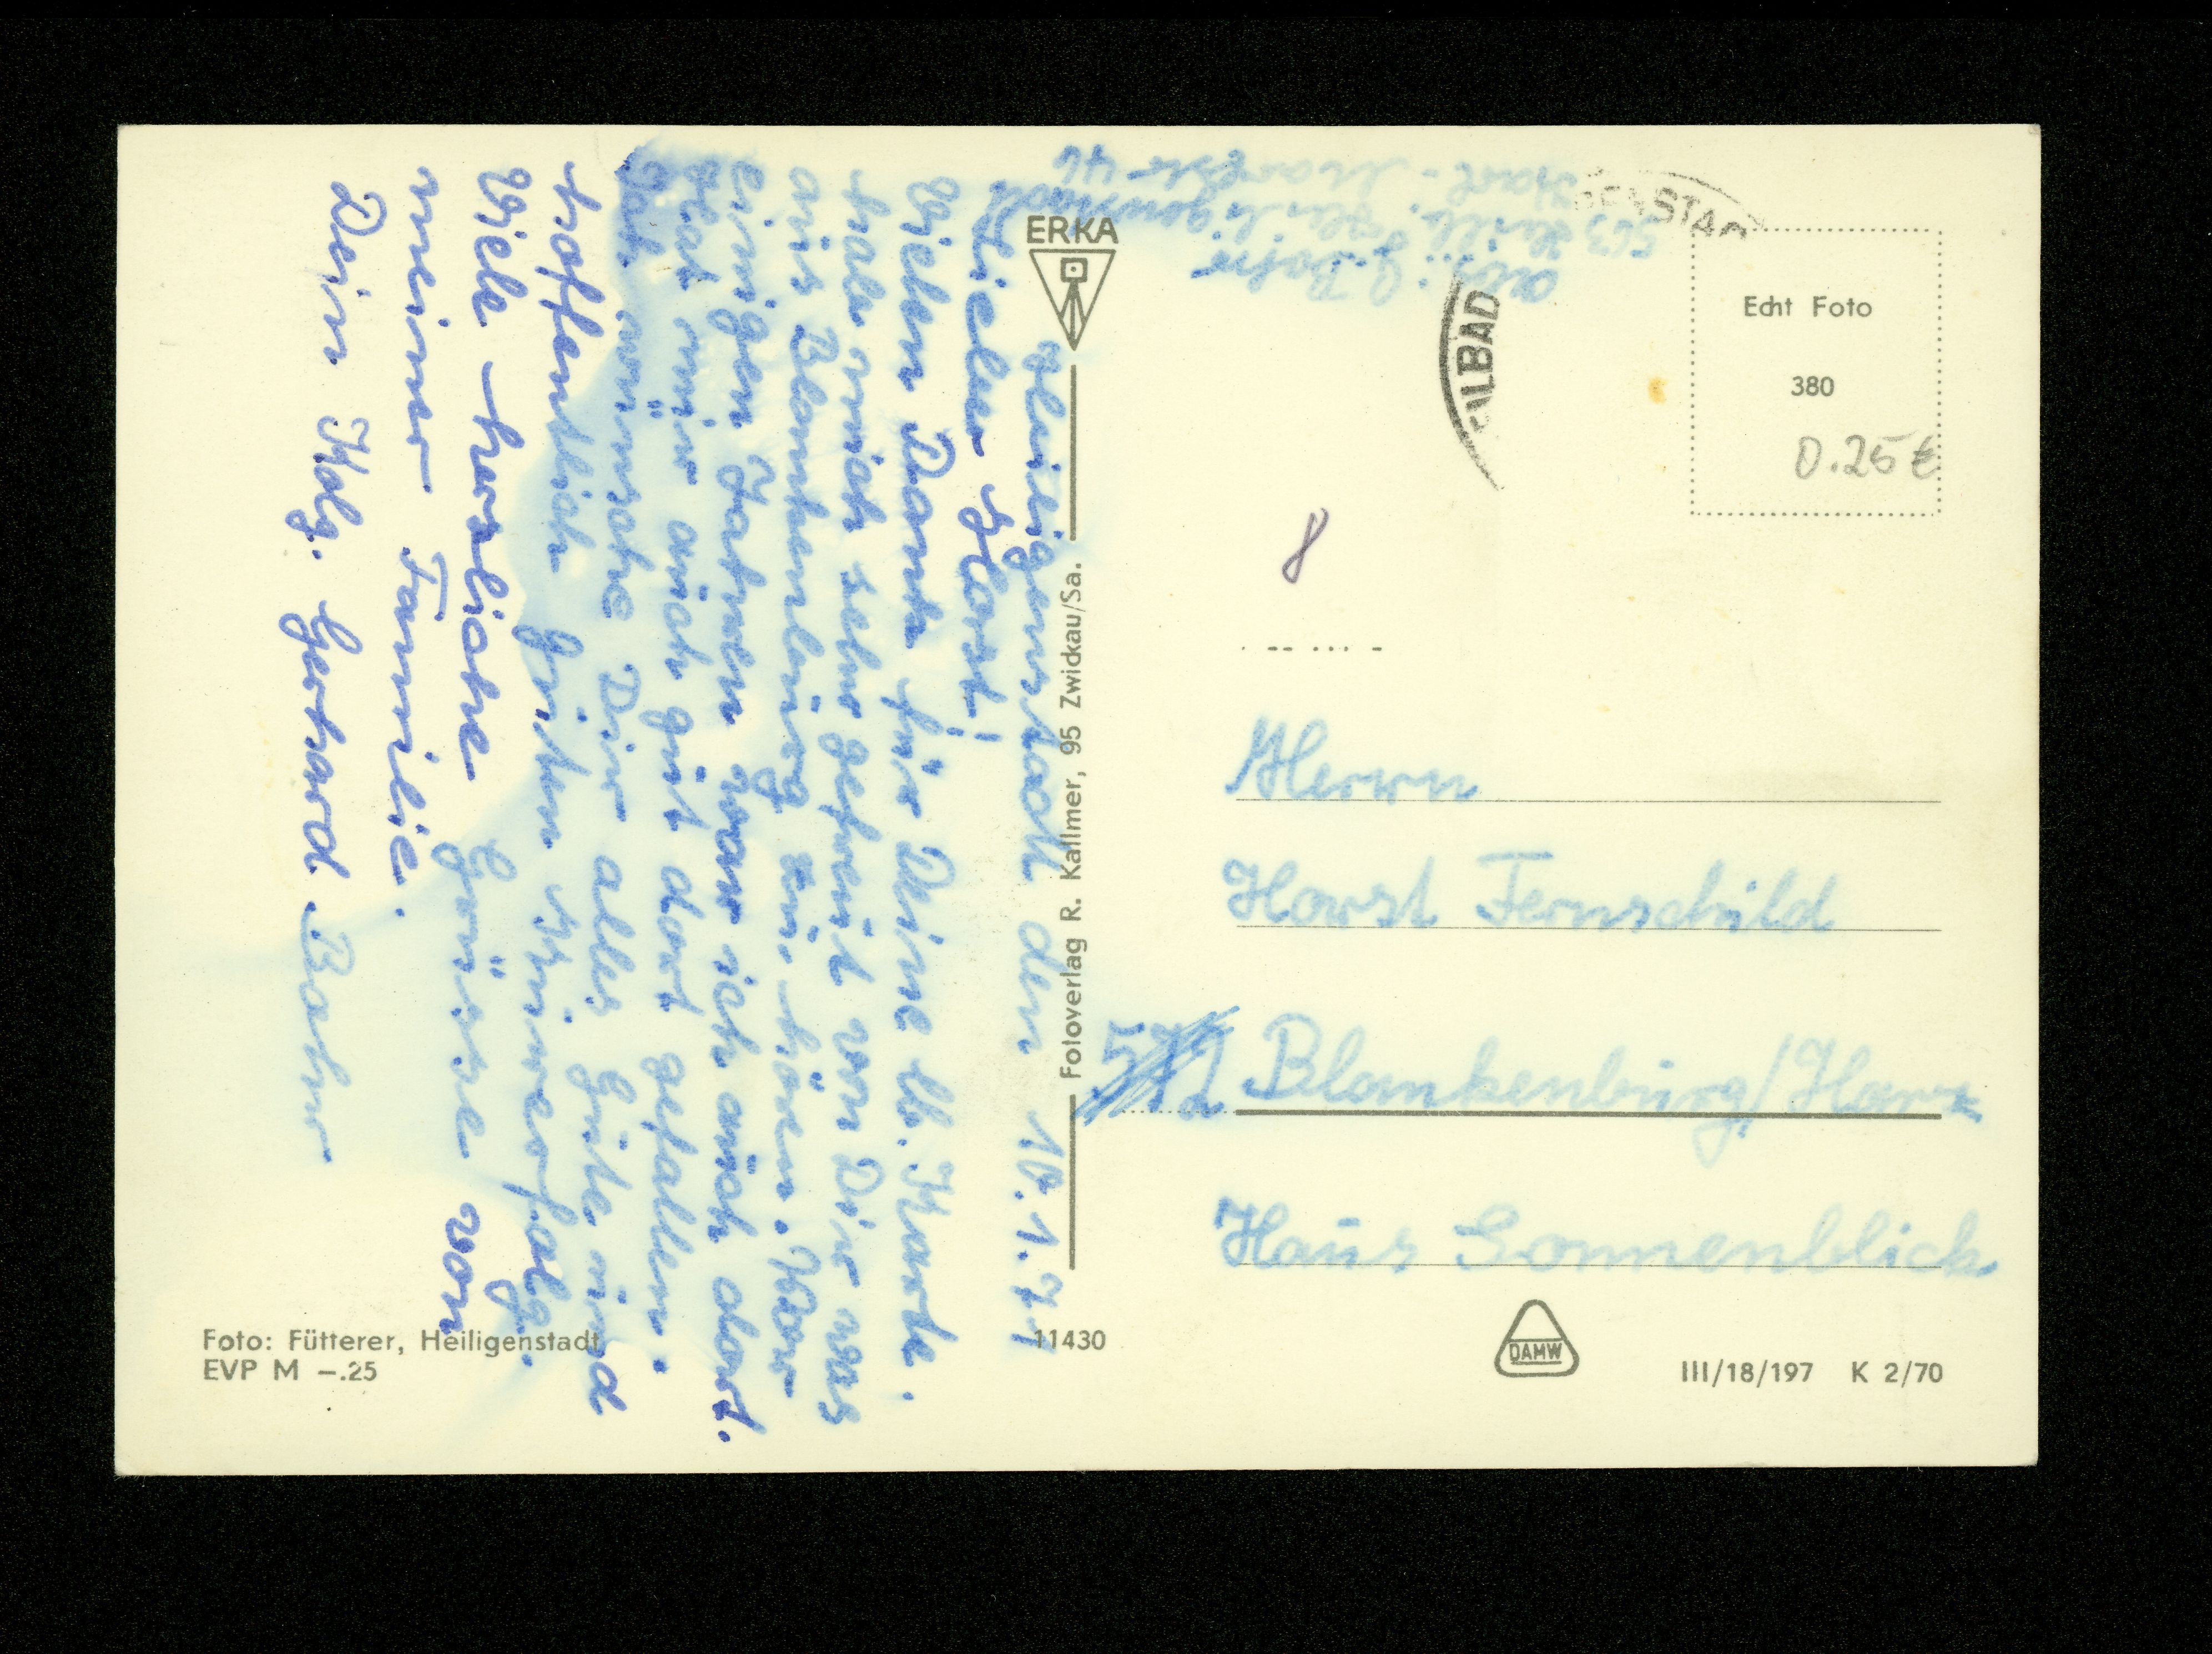 Heiligenstadt den 10.1.71
Lieber Horst!
Vielen Dank für Deine lb. Karte.
habe mich sehr gefreut von Dir was
aus Blankenburg zu hören. Vor
einigen Jahren war ich auch dort.
Hat mir auch gut dort gefallen.
Ich wünsche Dir alles Gute und
hoffentlich guten Kurerfolg.
Viele herzliche Grüsse von
meiner Familie.
Dein Kolg. Gerhard Bahr
Abs.: G. Bahr
563 Heilb. Heiligenstadt
Karl-Marxstr 46
ERKA
Fotoverlag R. Kallmer, 95 Zwickau/Sa.
ENSTAD
ILBAD
Echt Foto
380
0.25 €
8
Herrn
Horst Fernschild
Blankenburg/Harz
Haus Sonnenblick
Foto: Fütterer, Heiligenstadt
EVP M –.25
11430
DAMW
III/18/197 K 2/70